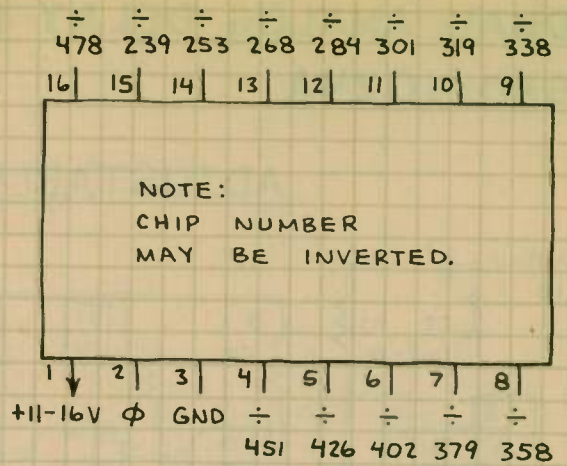 ÷ ÷ ÷ ÷ ÷ ÷ ÷ ÷
478 239 253 268 284 301 319 338
16 15 14 13 12 11 10 9
NOTE:
CHIP NUMBER
MAY BE INVERTED.
1 2 3 4 5 6 7 8
+11-16V φ GND ÷ ÷ ÷ ÷ ÷
451 426 402 379 358